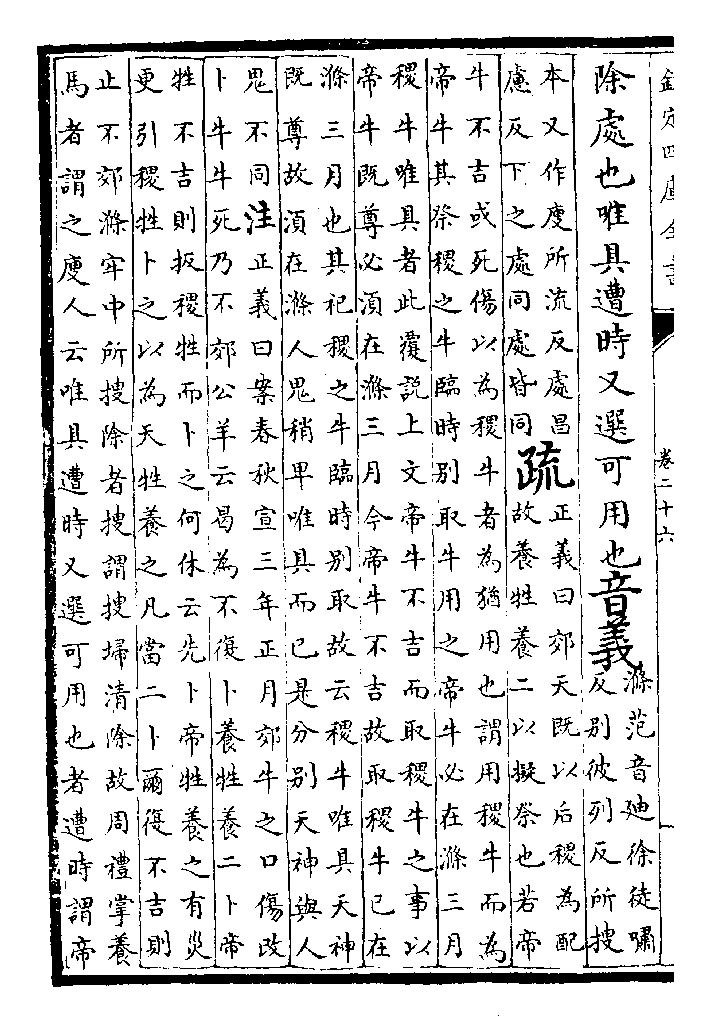 欽定四庫全書
卷二十六
除處也唯具遭時又選可用也音義滌范音廸徐徒嘯
反别彼列反所搜
本又作廋所流反處昌
慮反下之處同處皆同
疏正義曰郊天既以后稷為配
故養牲養二以擬祭也若帝
牛不吉或死傷以為稷牛者為猶用也謂用稷牛而為
帝牛其祭稷之牛臨時别取牛用之帝牛必在滌三月
稷牛唯具者此覆說上文帝牛不吉而取稷牛之事以
帝牛既尊必湏在滌三月今帝牛不吉故取稷牛已在
滌三月也其祀稷之牛臨時别取故云稷牛唯具天神
既尊故湏在滌人鬼稍卑唯具而已是分别天神與人
鬼不同注正義曰案春秋宣三年正月郊牛之口傷改
卜牛牛死乃不郊公羊云曷為不復卜養牲養二卜帝
牲不吉則扳稷牲而卜之何休云先卜帝牲養之有災
更引稷牲卜之以為天牲養之凡當二卜爾復不吉則
止不郊滌牢中所搜除者搜謂搜埽清除故周禮掌養
馬者謂之廋人云唯具遭時又選可用也者遭時謂帝